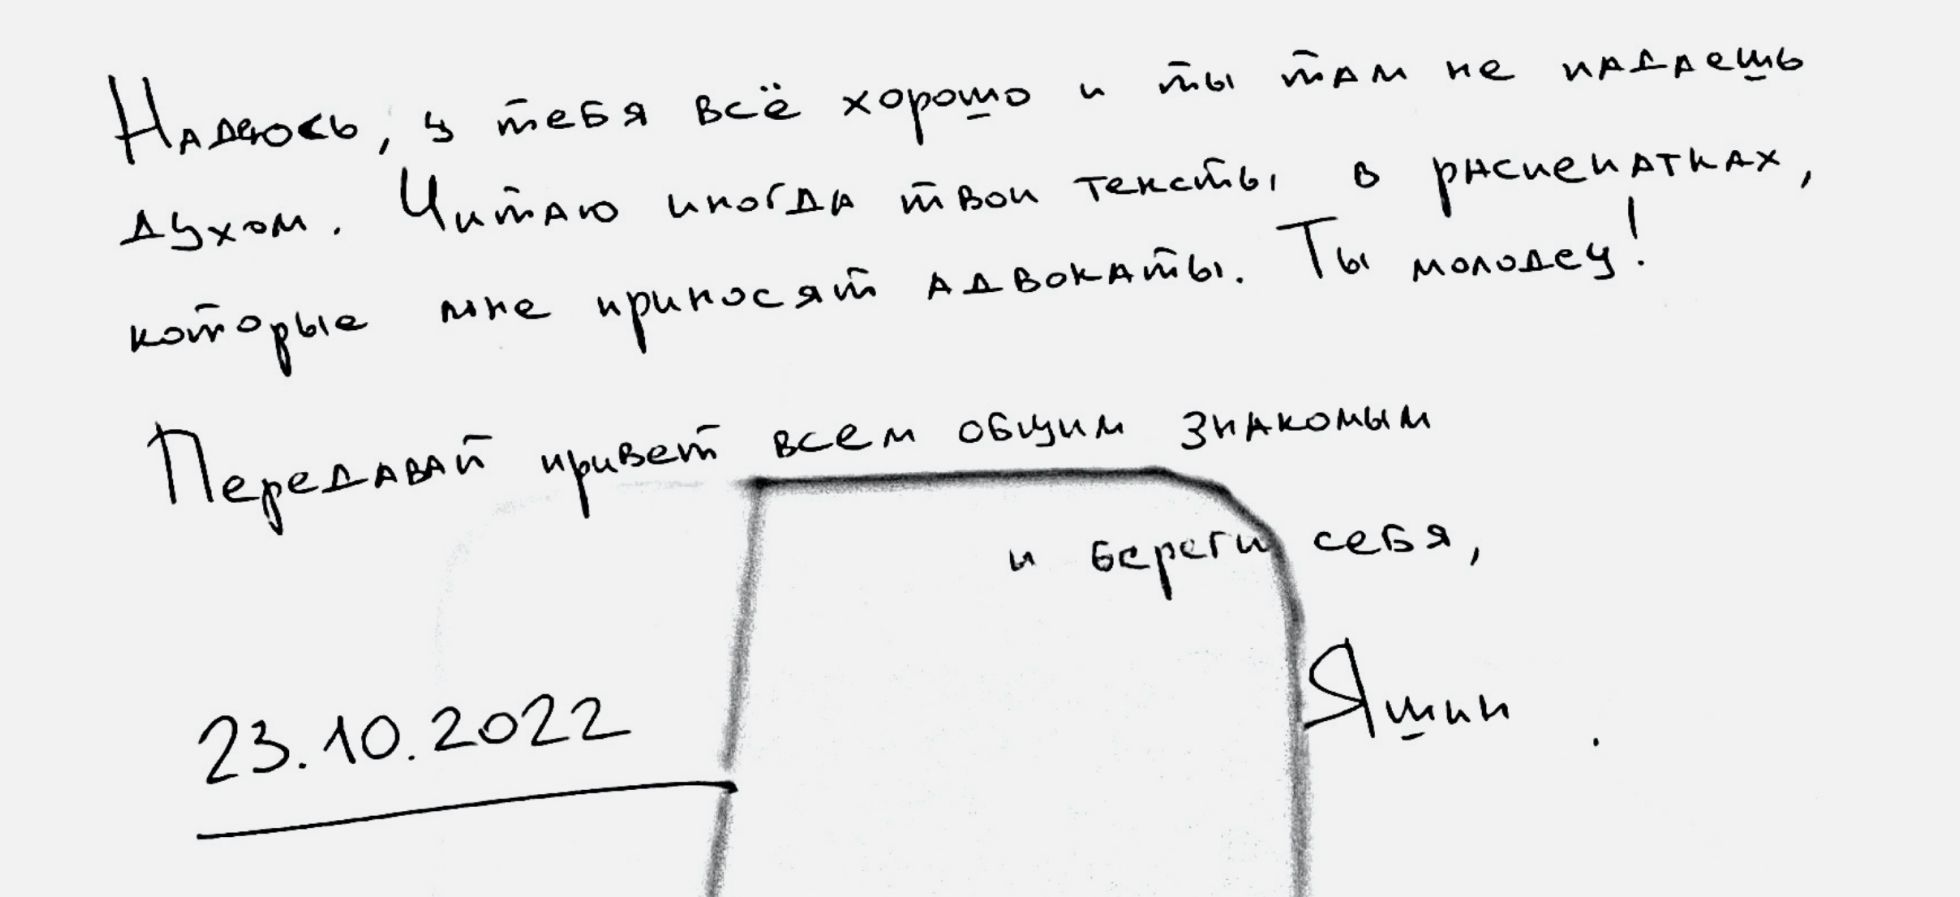 Надеюсь, у тебя всё хорошо и ты там не падаешь
духом. Читаю иногда твои тексты в распечатках,
которые мне приносят адвокаты. Ты молодец!
Передавай привет всем общим знакомым
и береги себя,
Яшин.
23.10.2022